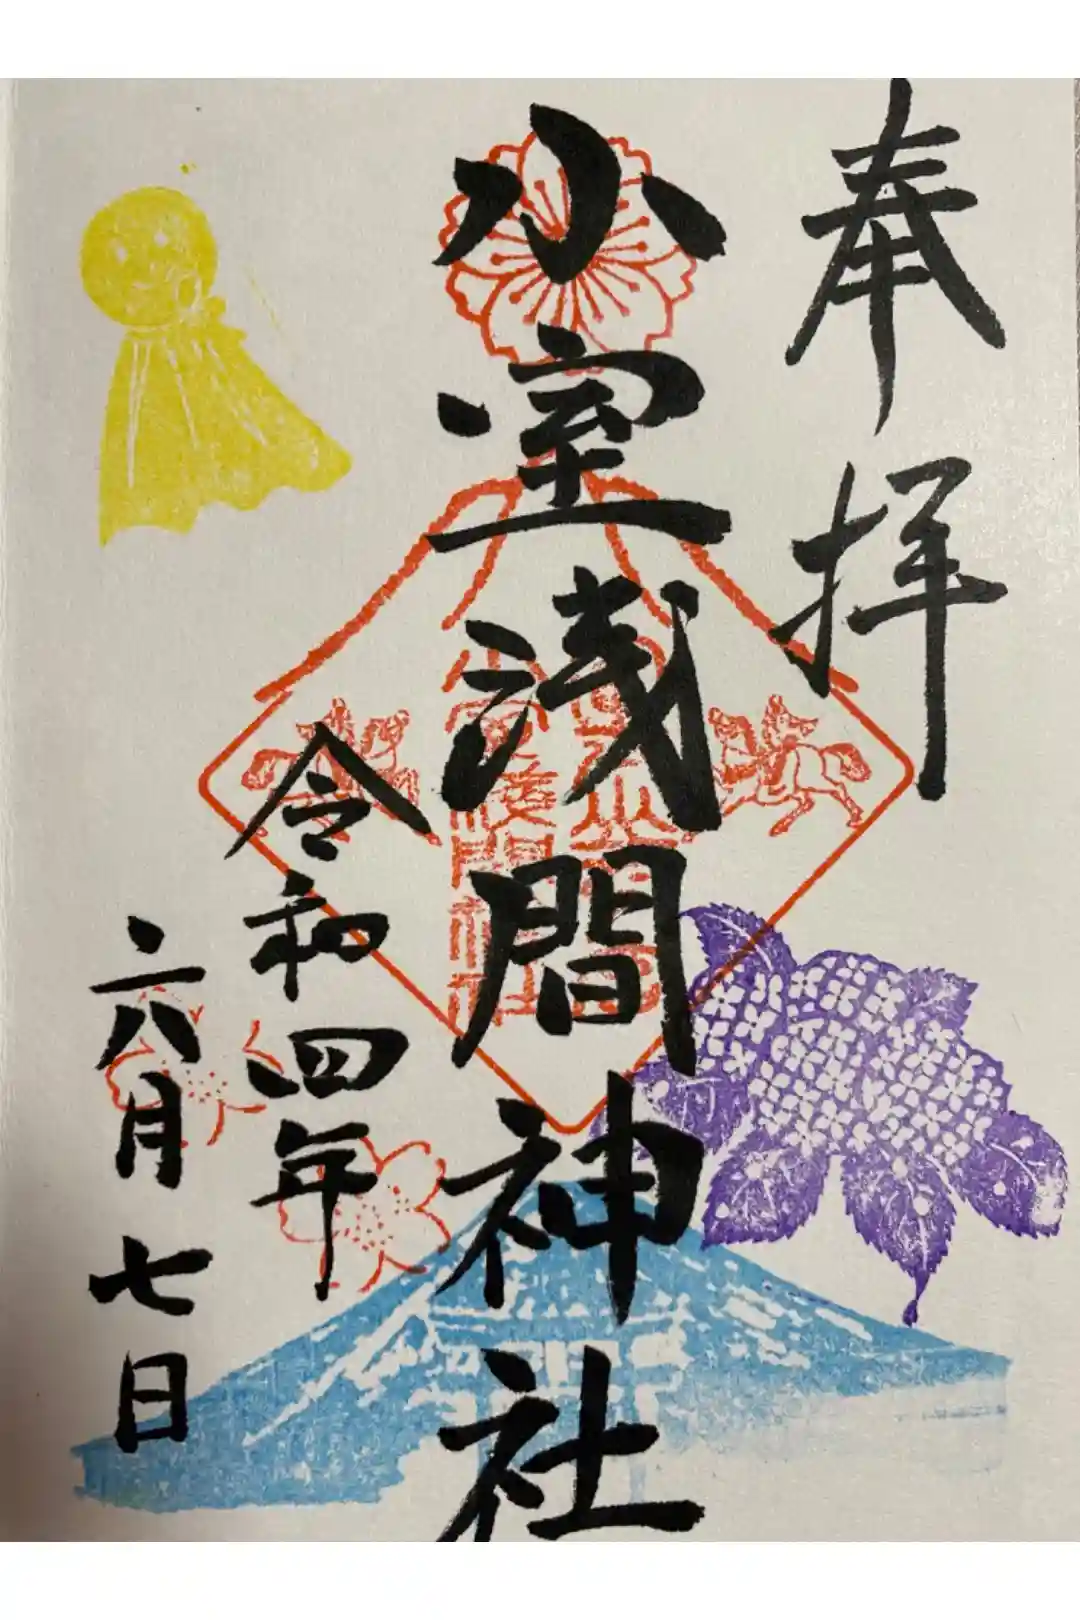 奉拝
小室浅間神社
令和四年
六月七日